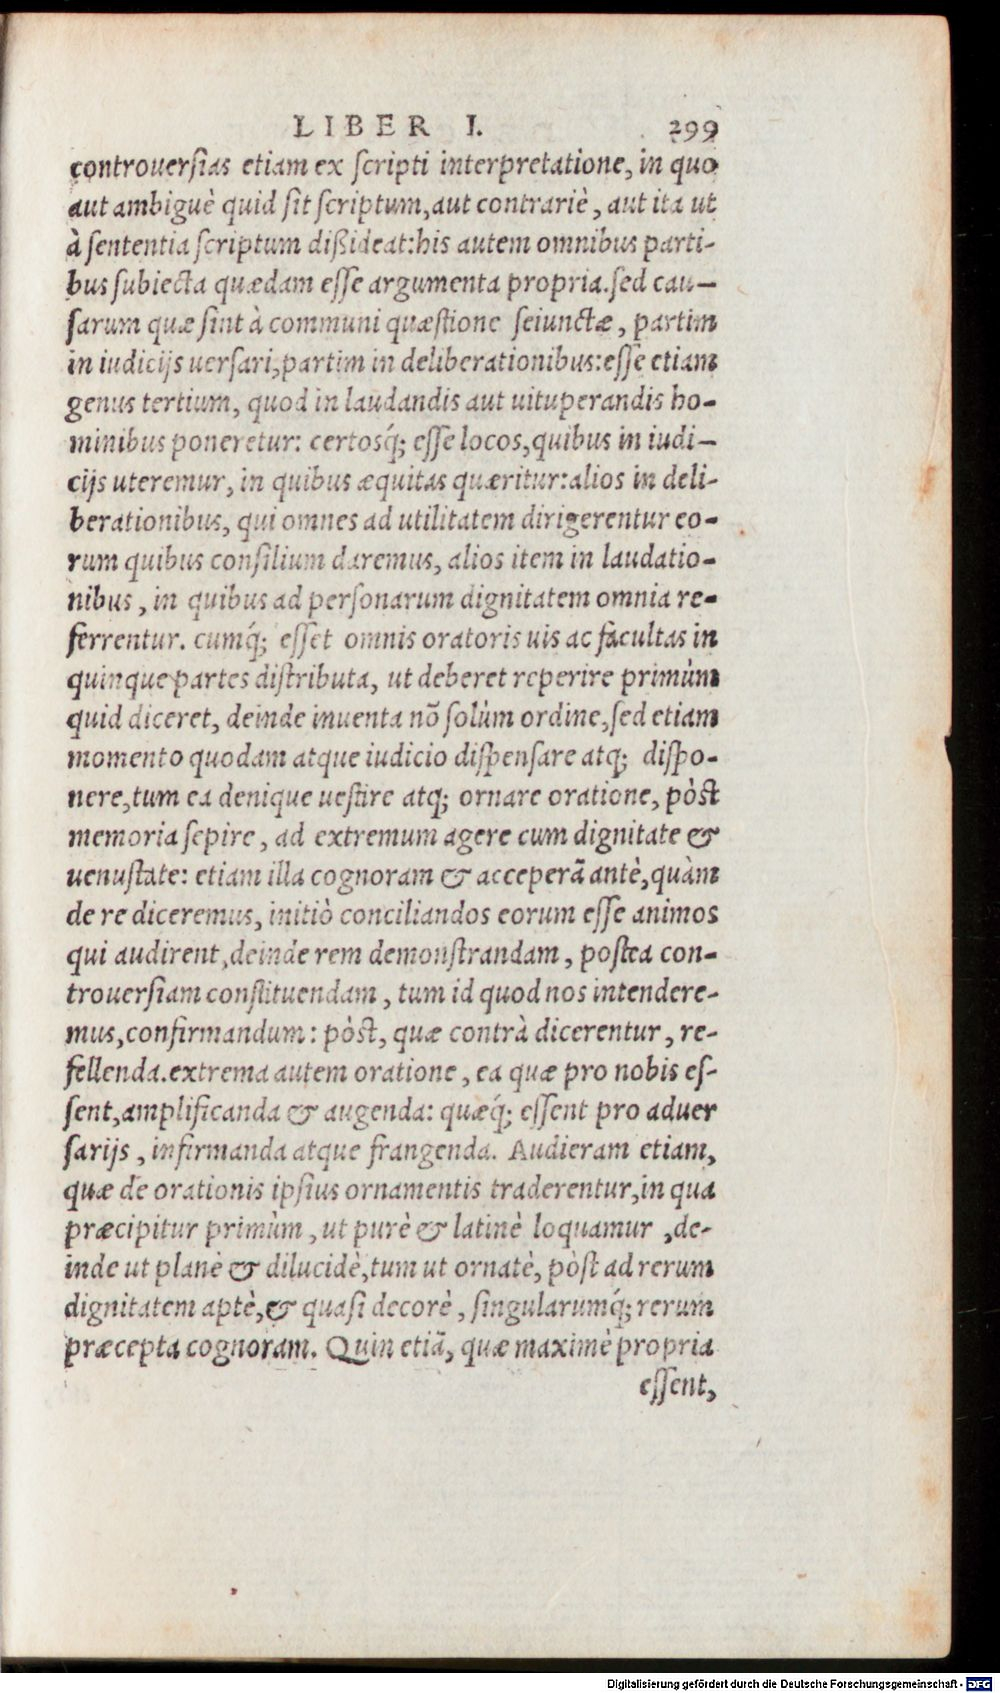 LIBER I. 299
controuersias etiam ex scripti interpretatione, in quo
aut ambiguè quid sit scriptum, aut contrariè, aut ita ut
à sententia scriptum dißideat: his autem omnibus parti-
bus subiecta quædam esse argumenta propria. sed cau-
sarum quæ sint à communi quæstione seiunctæ, partim
in iudicijs uersari, partim in deliberationibus: esse etiam
genus tertium, quod in laudandis aut uituperandis ho-
minibus poneretur: certosq́; esse locos, quibus in iudi-
cijs uteremur, in quibus æquitas quæritur: alios in deli-
berationibus, qui omnes ad utilitatem dirigerentur eo-
rum quibus consilium daremus, alios item in laudatio-
nibus, in quibus ad personarum dignitatem omnia re-
ferrentur. cumq́; esset omnis oratoris uis ac facultas in
quinque partes distributa, ut deberet reperire primùm
quid diceret, deinde inuenta nõ solùm ordine, sed etiam
momento quodam atque iudicio dispensare atq; dispo-
nere, tum ea denique uestire atq; ornare oratione, pòst
memoria sepire, ad extremum agere cum dignitate &
uenustate: etiam illa cognoram & acceperã antè, quàm
de re diceremus, initiò conciliandos eorum esse animos
qui audirent, deinde rem demonstrandam, postea con-
trouersiam constituendam, tum id quod nos intendere-
mus, confirmandum: pòst, quæ contrà dicerentur, re-
fellenda. extrema autem oratione, ea quæ pro nobis es-
sent, amplificanda & augenda: quæq́; essent pro aduer
sarijs, infirmanda atque frangenda. Audieram etiam,
quæ de orationis ipsius ornamentis traderentur, in qua
præcipitur primùm, ut purè & latinè loquamur, de-
inde ut planè & dilucidè, tum ut ornatè, pòst ad rerum
dignitatem aptè, & quasi decorè, singularumq́; rerum
præcepta cognoram. Quin etiã, quæ maximè propria
essent,
Digitalisierung gefördert durch die Deutsche Forschungsgemeinschaft - DFG